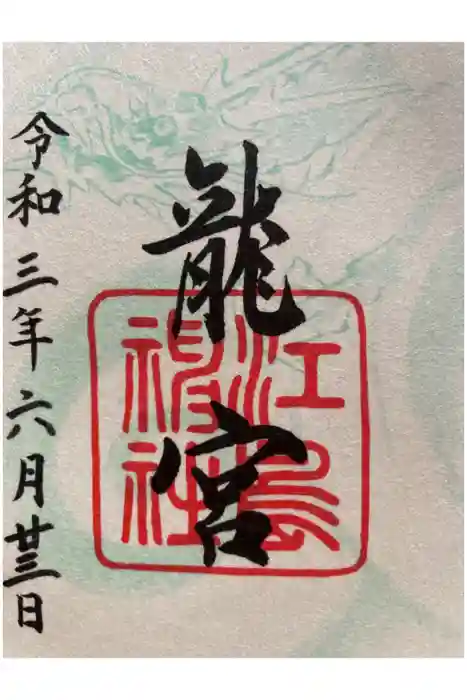 龍宮
江島
神社
令和三年六月廿三日